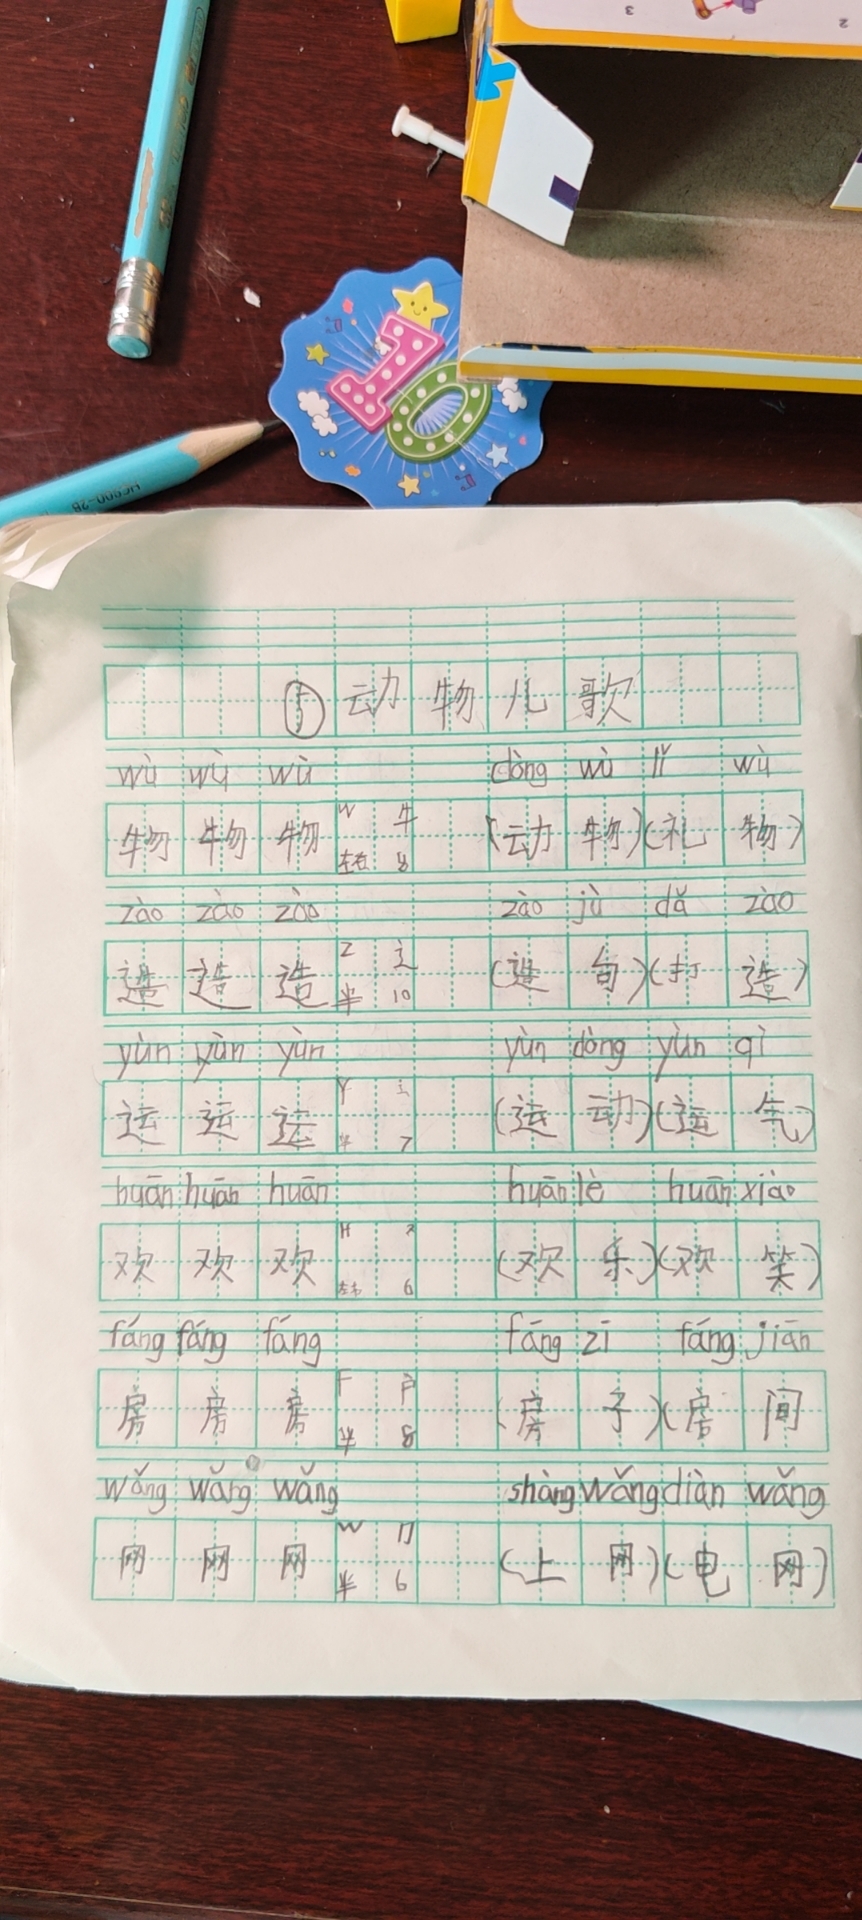 3 2
10
⑤动物儿歌
wù wù wù dòng wù lǐ wù
物 物 物 W 牛 左右 8 (动物)(礼物)
zào zào zào zào jù dǎ zào
造 造 造 Z 辶 半 10 (造句)(打造)
yùn yùn yùn yùn dòng yùn qì
运 运 运 Y 辶 半 7 (运动)(运气)
huān huān huān huān lè huān xiào
欢 欢 欢 H 又 左右 6 (欢乐)(欢笑)
fáng fáng fáng fáng zi fáng jiān
房 房 房 F 户 半 8 (房子)(房间
wǎng wǎng wǎng shàng wǎng diàn wǎng
网 网 网 W 冂 半 6 (上网)(电网)